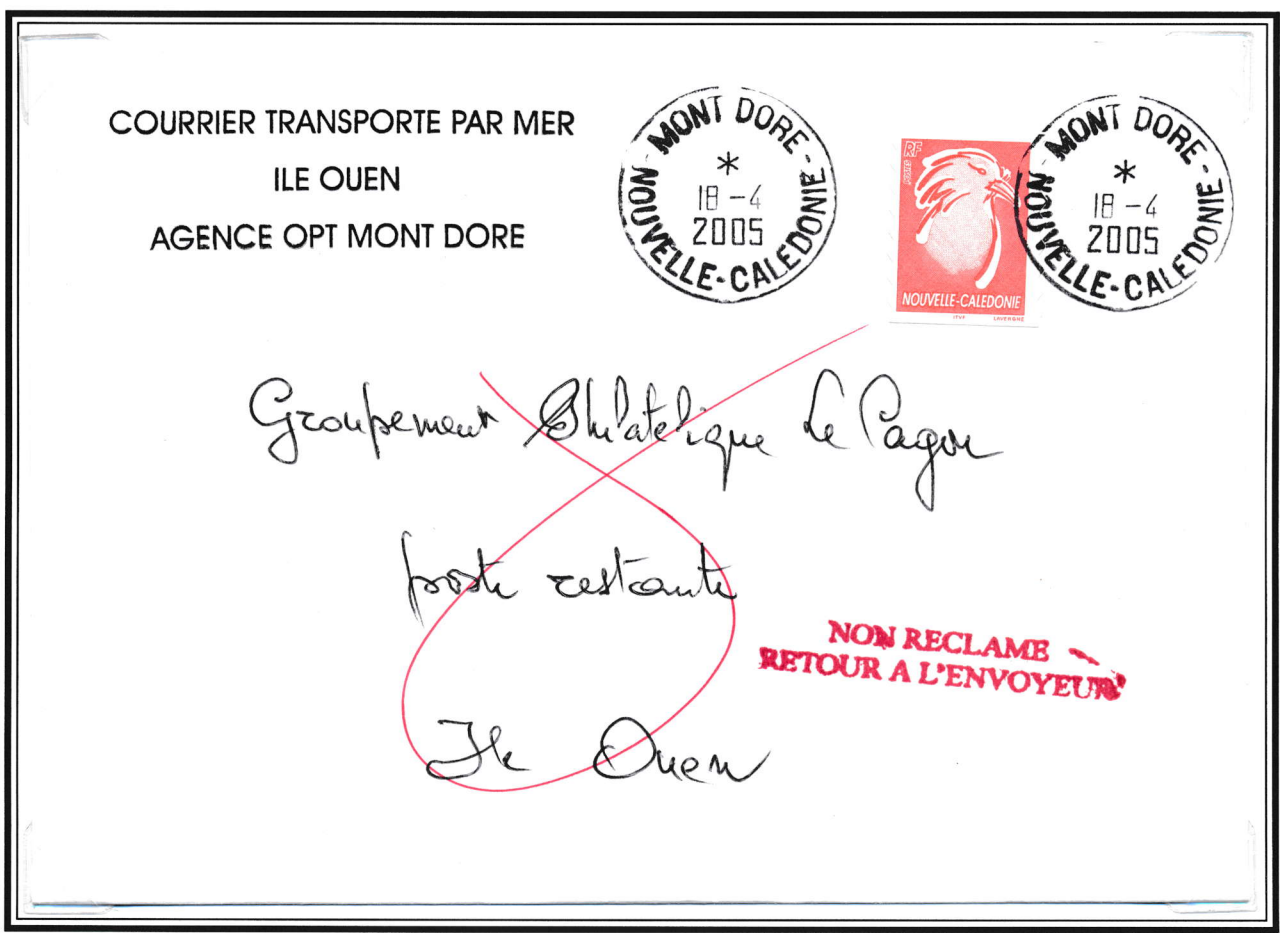 COURRIER TRANSPORTE PAR MER
ILE OUEN
AGENCE OPT MONT DORE
MONT DORE -
*
18 - 4
2005
NOUVELLE-CALEDONIE -
RF
POSTES
NOUVELLE-CALEDONIE
ITVF LAVERGNE
MONT DORE -
*
18 - 4
2005
NOUVELLE-CALEDONIE -
Groupement Philatelique Le Cagou
poste restante
Ile Ouen
NON RECLAME
RETOUR A L'ENVOYEUR